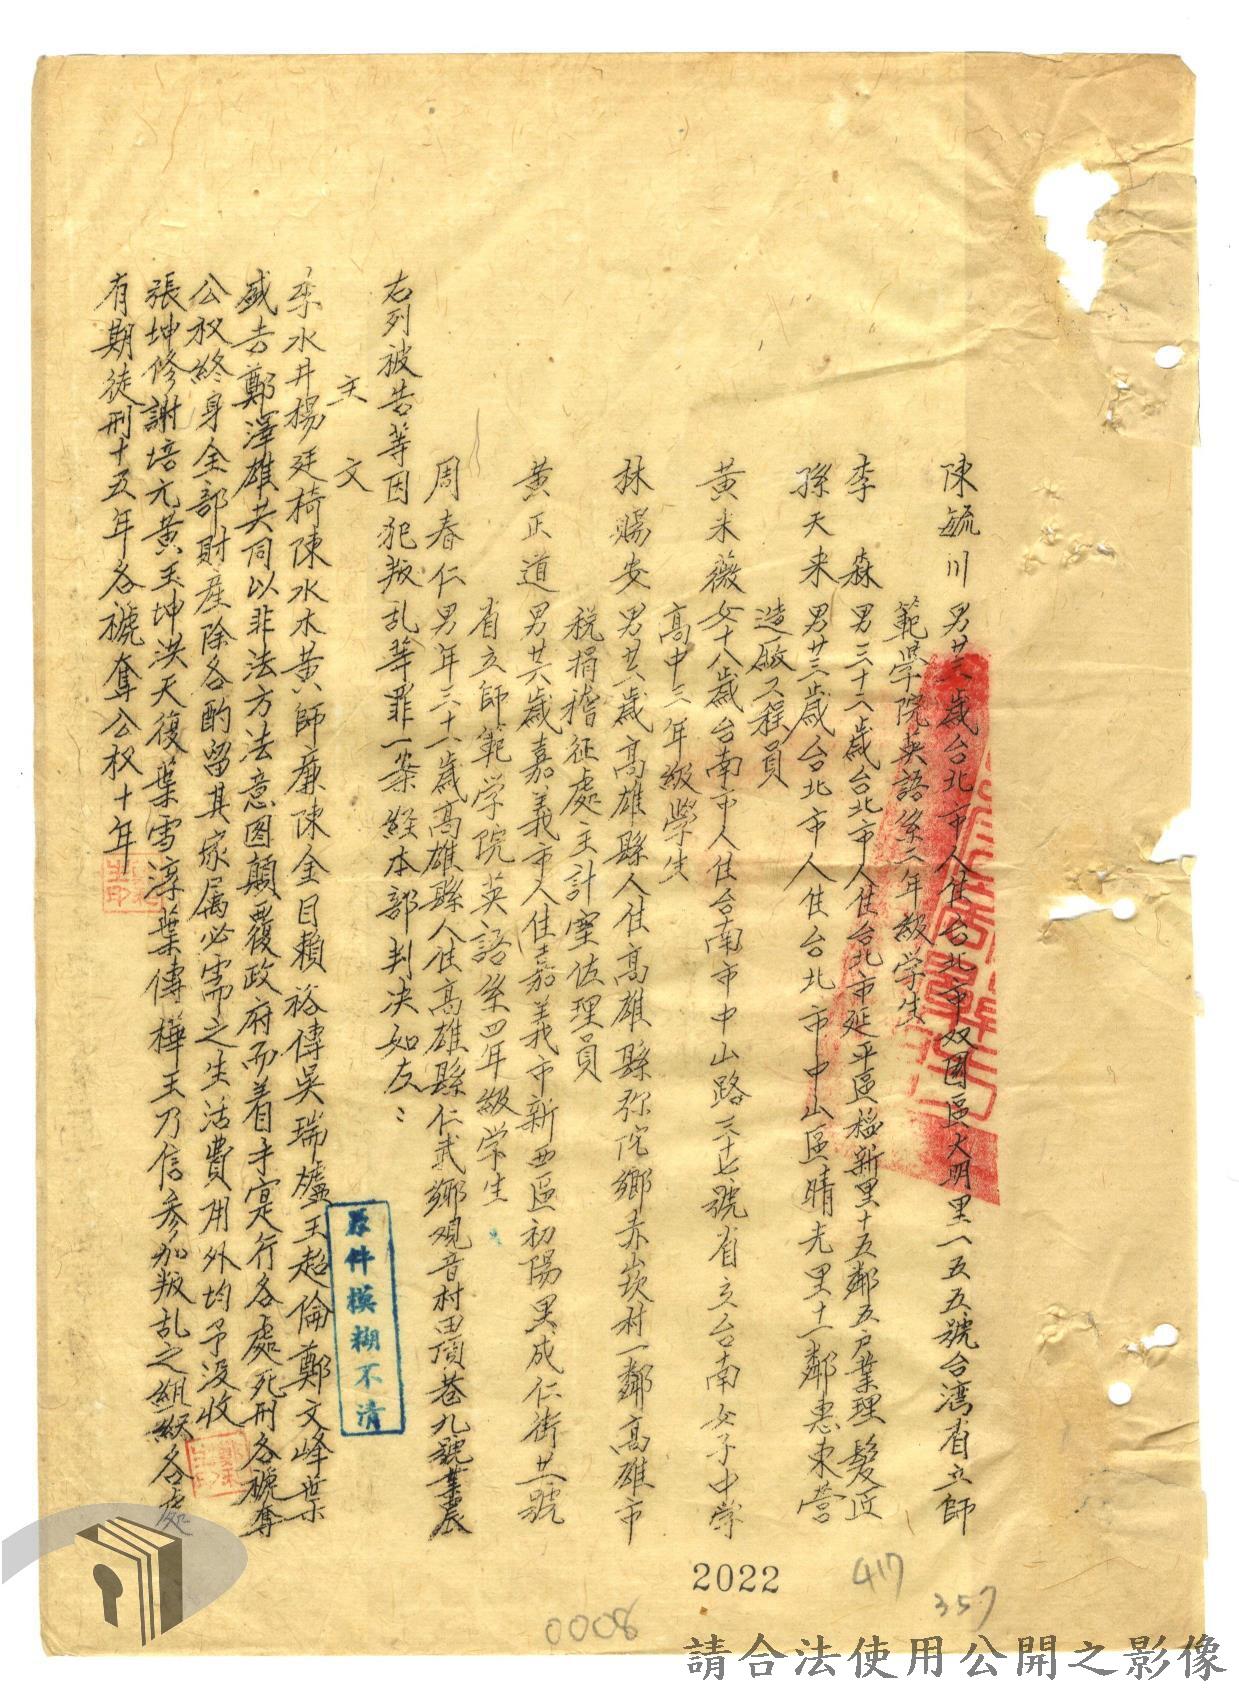 陳毓川 男廿三歲台北市人住台北市双園區大明里一五五號台湾省立師
範學院英語系二年級学生
李 森 男三十六歲台北市人住台北市延平區 新里十五鄰五户業理髮匠
孫天来 男廿三歲台北市人住台北市中山區晴光里十一鄰惠東营
造廠工程員
黃采薇 女十八歲台南市人住台南市中山路三十七號省立台南女子中学
高中三年級學生
林賜安 男廿六歲高雄縣人住高雄縣弥陀鄉赤崁村一鄰高雄市
税捐稽征處主計室佐理員
黃正道 男廿六歲嘉義市人住嘉義市新西區初陽里成仁街廿一號
省立師範学院英語系四年級学生
周春仁 男年三十一歲高雄縣人住高雄縣仁武鄉观音村田頂巷九號業农
右列被告等因犯叛乱等罪一案經本部判决如左：
主 文
李水井楊廷椅陳水木黃師廉陳金目賴裕傳吳瑞爐王超倫鄭文峰葉
盛吉鄭澤雄共同以非法方法意图顛覆政府而着手实行各處死刑各褫奪
公权終身全部財產除各酌留其家属必需之生活費用外均予没收
張坤修謝培元黃玉坤洪天復葉雪淳葉傳樺王乃信參加叛乱之組织各處
有期徒刑十五年各褫奪公权十年
原件模糊不清
2022
417
357
0008
請合法使用公開之影像